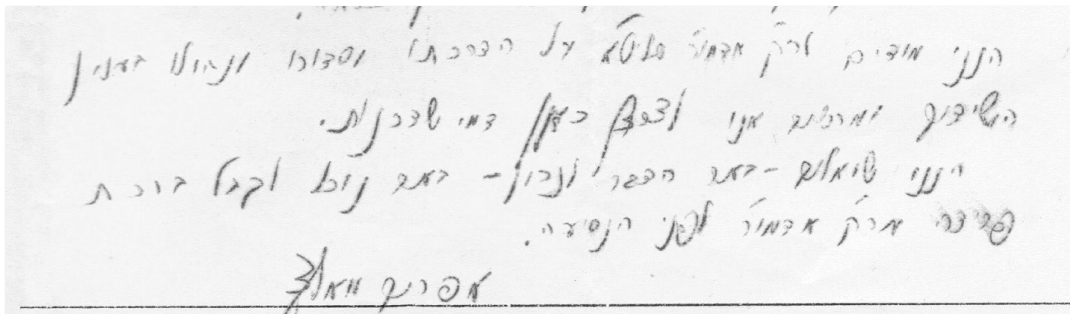 הננו מודים לכ״ק אדמו״ר שליט״א על הדרכתו וסדורו ונהולו בענין
השידוך ומרצים אנו דמי שדכנות.
הננו שואלים - באם הדבר נכון - באם נוכל לקבל ברכת
פרידה מכ״ק אדמו״ר לפני הנסיעה.
אפרים